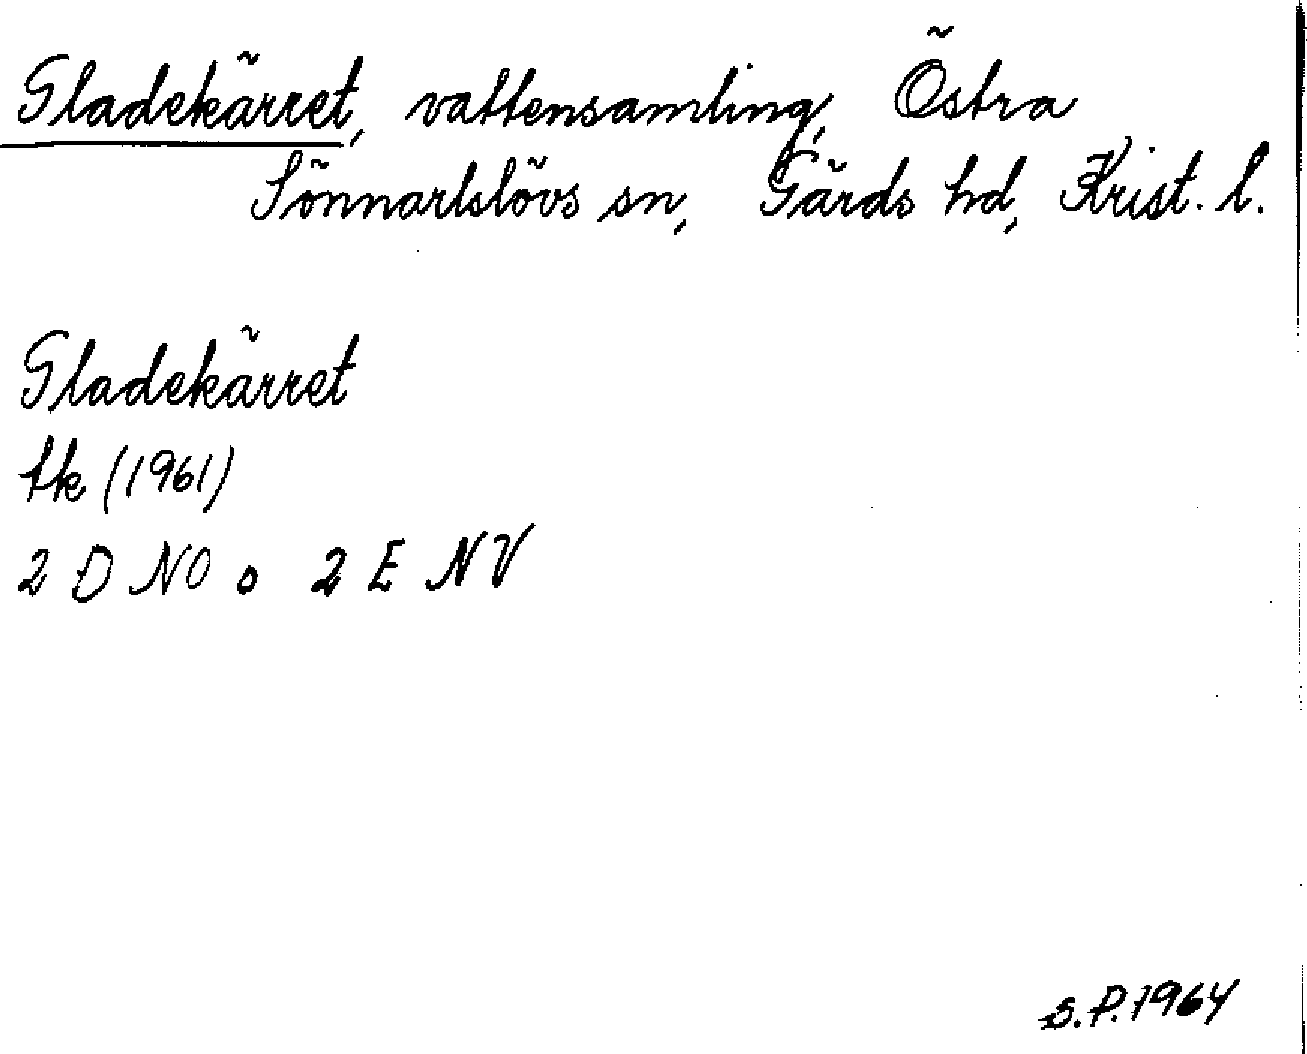 Gladekärret, vattensamling, Östra
Sönnarlslövs sn, Gärds hd, Krist. l.
Gladekärret
tk (1961)
2 D NO o 2 E NV
S.P. 1964